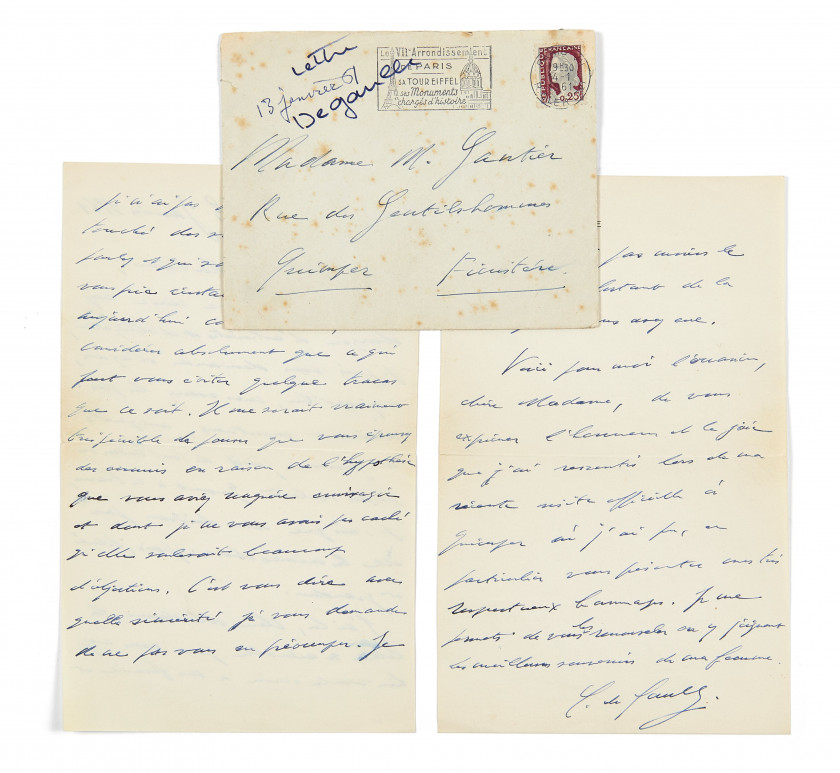 Lettre
13 janvier 61
De Gaulle
Le VIIe Arrondissement
DE PARIS
SA TOUR EIFFEL
ses Monuments
chargés d'histoire
REPUBLIQUE FRANCAISE
0,25
Madame M. Gautier
Rue des Gentilshommes
Quimper Finistère
je n'ai pas
touché des
parlez et qui
vous prie
aujourd'hui
considérer absolument que ce qui
peut vous éviter quelque tracas
que ce soit. Il me serait vraiment
très pénible de penser que vous éprouvez
des ennuis en raison de l'hypothèse
que vous aviez naguère envisagée
et dont je ne vous avais pas caché
qu'elle soulevait beaucoup
d'objections. C'est vous dire avec
quelle sincérité je vous demande
de ne pas vous en préoccuper. Je
pas moins le
instant de la
que.
Voici pour moi l'occasion,
chère Madame, de vous
exprimer l'honneur et la joie
que j'ai ressentis lors de ma
récente visite officielle à
Quimper où j'ai pu, en
particulier vous présenter mes très
respectueux hommages. Je me
permets de vous les renouveler en y joignant
les meilleurs souvenirs de ma femme.
C. de Gaulle.